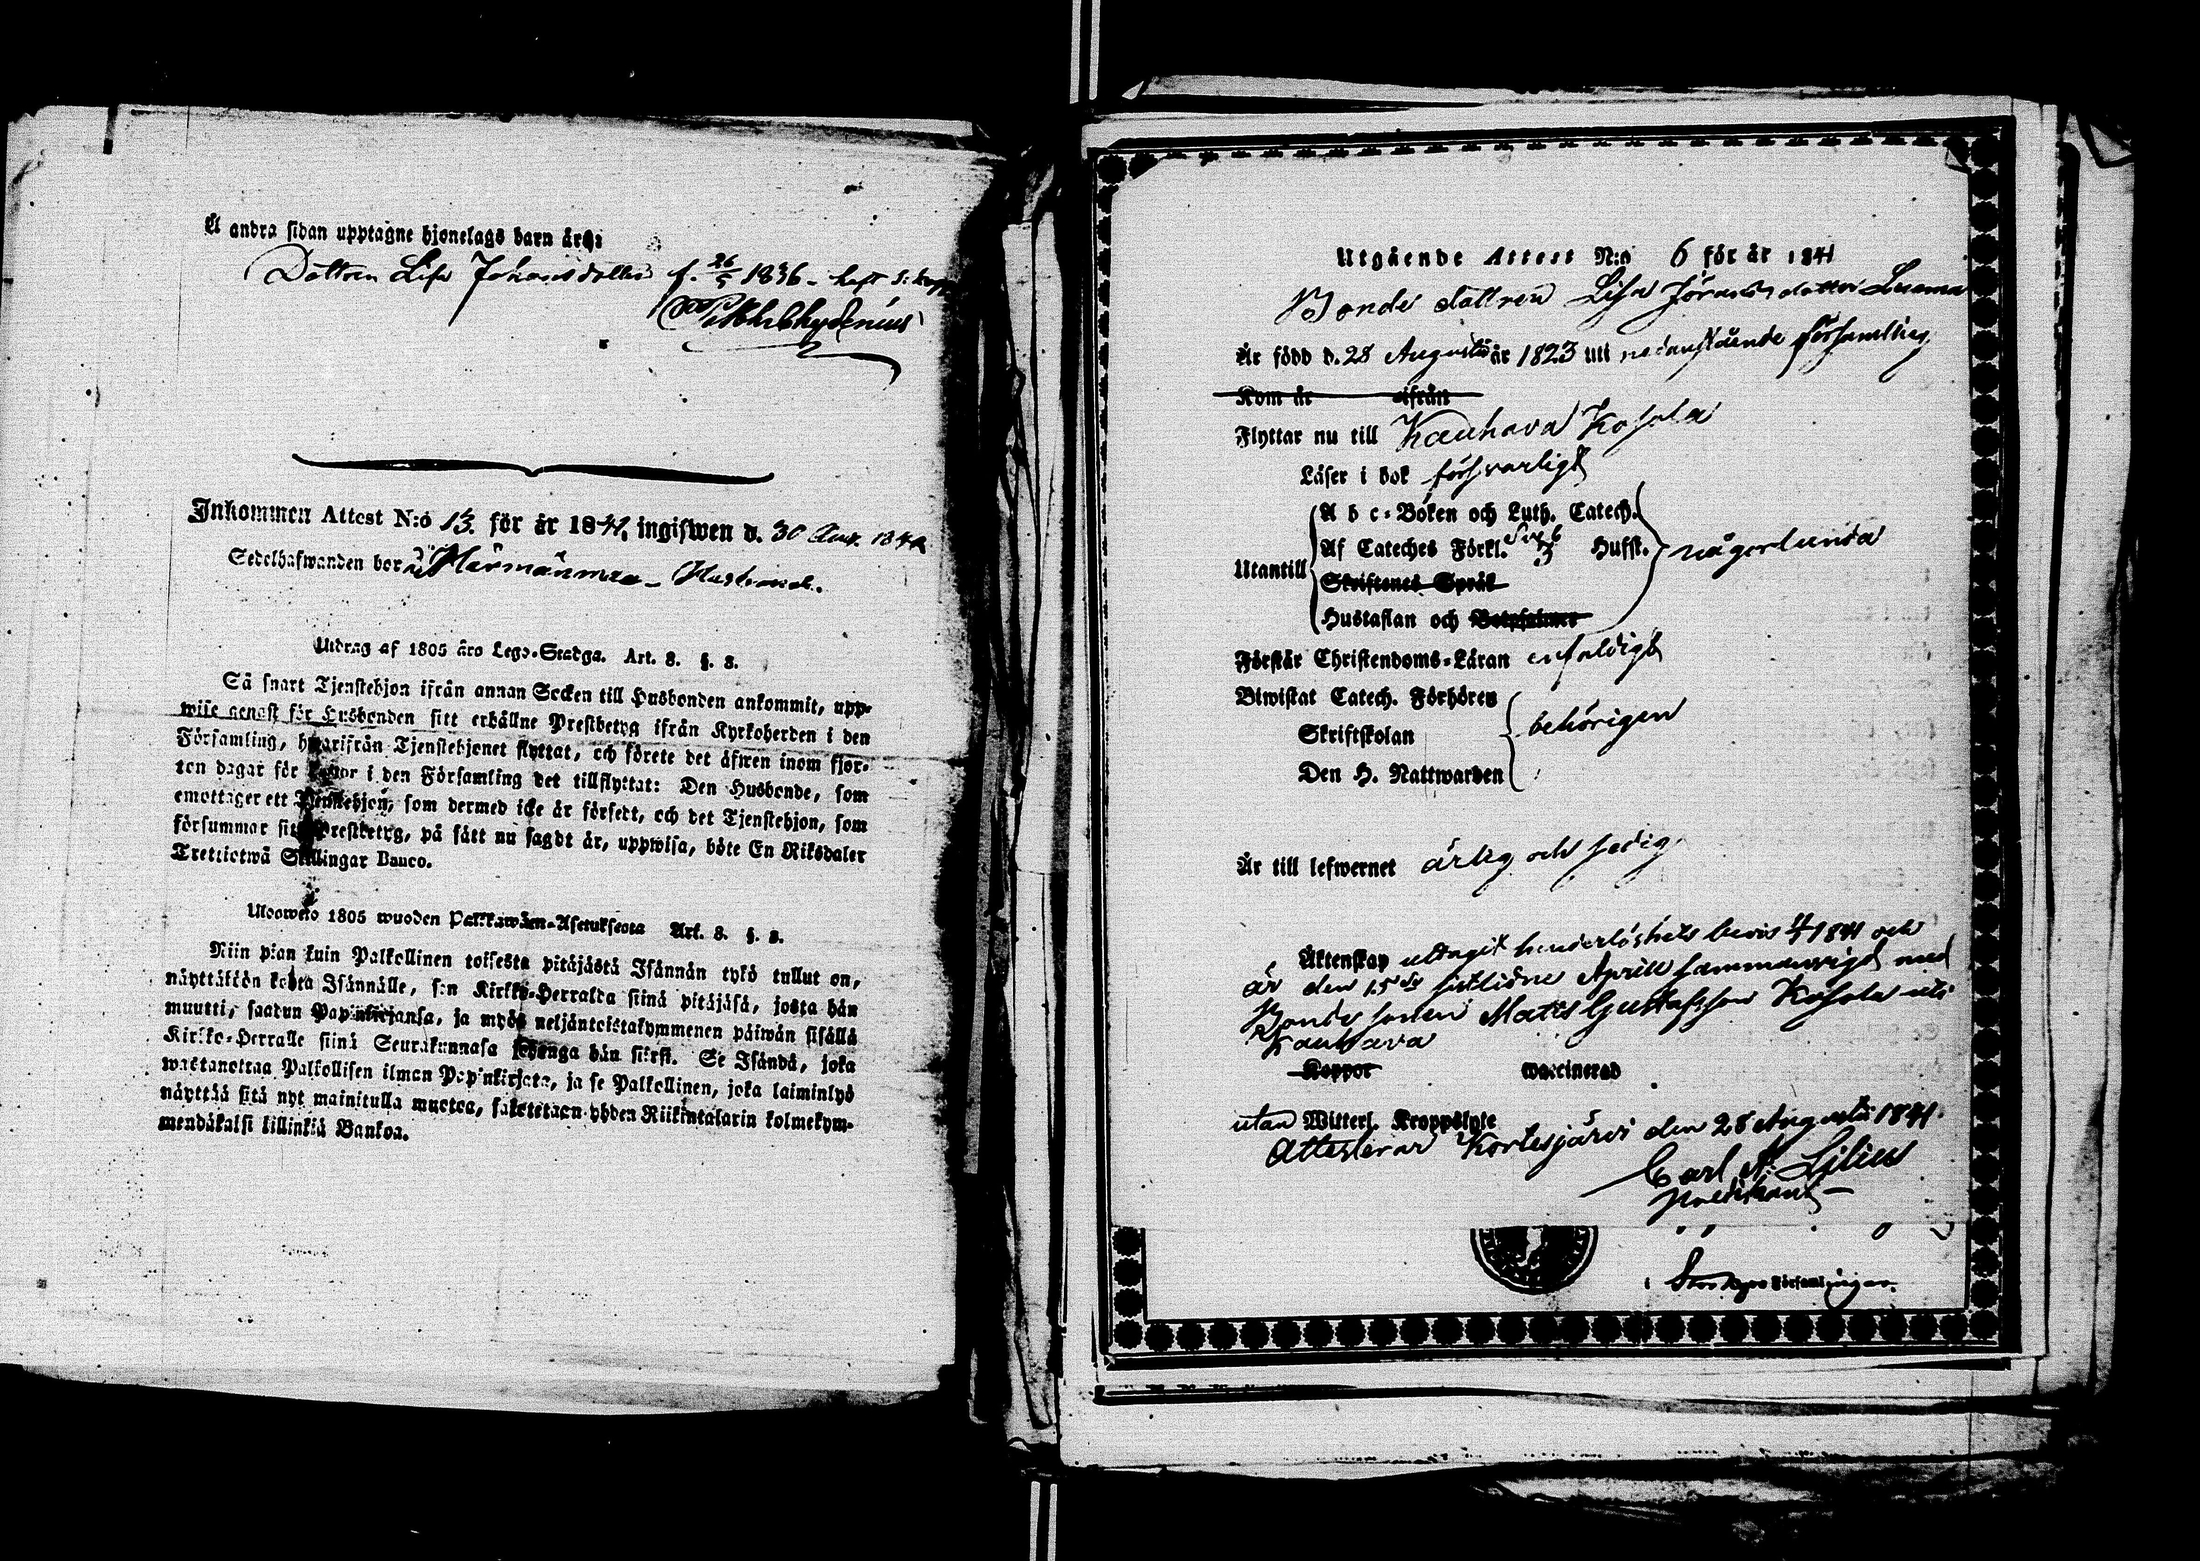 Å andra sidan upptagne hjonelags barn äro:
Dottren Lisa Johansdotter f. 26/5 1836 - haft s: kopp
Inkommen Attest N:o 13. för år 1841, ingifwen d. 30 1841
Sedelhafwanden bor Härmänmaa - Husbonde.
Utdrag af 1805 års Lego-Stadga. Art. 8. §. 8.
Så snart Tjenstehjon ifrån annan Socken till Husbonden ankommit, upp-
wise genast för Husbonden sitt erhållne Prestbetyg ifrån Kyrkoherden i den
Församling, hwarifrån Tjenstehjonet flyttat, och förete det äfwen inom fjor-
ton dagar för Pastor i den Församling det tillflyttat: Den Husbonde, som
emottager ett Tjenstehjon, som dermed icke är försedt, och det Tjenstehjon, som
försummar sitt Prestbetyg, på sätt nu sagdt är, uppwisa, böte En Riksdaler
Trettiotwå Skillingar Banco.
Ulosweto 1805 wuoden Palkkawäen-Asetuksesta Art. 8. §. 8.
Niin pian kuin Palkollinen toisesta pitäjästä Isännän tykö tullut on,
näyttäkään kohta Isännälle, sen Kirkko-Herralda siinä pitäjäsä, josta hän
muutti, saadun Papinkirjansa, ja myös neljäntoistakymmenen päiwän sisällä
Kirkko-Herralle siinä Seurakunnasa johonga hän siirsi. Se Isändä, joka
wastanottaa Palkollisen ilman Papinkirjata, ja se Palkollinen, joka laiminlyö
näyttää sitä nyt mainitulla muotoa, sakotetaan yhden Riikintalarin kolmekym-
mendäkaksi killinkiä Bankoa.
Utgående Attest N:o 6 för år 1841
Bonde dottren Lisa Jöransdotter Luoma
Är född d. 28 Augusti år 1823 uti nedanstående församling
Kom år ifrån
Flyttar nu till Kauhava Kosola
Läser i bok försvarligt
Utantill
A b c-Boken och Luth. Catech.
Af Cateches Förkl. Hufst.
Skriftenes Språk
Hustaflan och Botpsalmer
någorlunda
Förstår Christendoms-Läran enfaldigt
Biwistat Catech. Förhören
Skriftskolan
Den H. Nattwarden
behörigen
Är till lefwernet ärlig och sedig
Äktenskap uttagit hinderlöshets bevis 4/4 1841 och
är den 15de sistlidne April sammanvigd med
Bonde sonen Matts Gustafsson Kosola uti
Kauhava
Koppor waccinerad
utan Witterl. Kroppslyte
Attesterar Kortesjärvi den 28 Augusti 1841.
Carl A: Lilius
i Storkyro Församlingar.